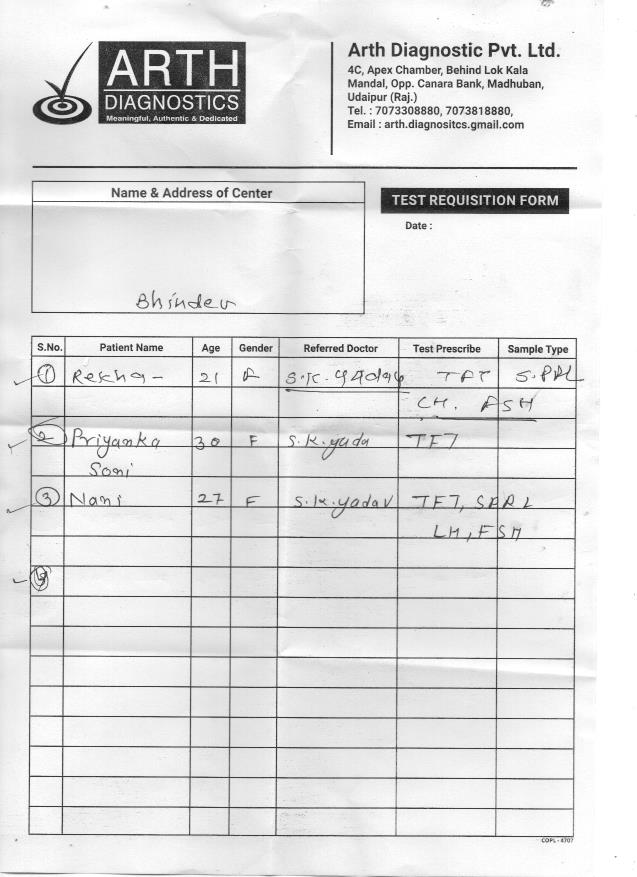 ARTH
DIAGNOSTICS
Meaningful, Authentic & Dedicated
Arth Diagnostic Pvt. Ltd.
4C, Apex Chamber, Behind Lok Kala
Mandal, Opp. Canara Bank, Madhuban,
Udaipur (Raj.)
Tel. : 7073308880, 7073818880,
Email : arth.diagnositcs.gmail.com
Name & Address of Center
TEST REQUISITION FORM
Date :
Bhinder
S.No. Patient Name Age Gender Referred Doctor Test Prescribe Sample Type
1 Rekha - 21 F S.K. यादव TFT S.PRL
LH. FSH
2 Priyanka 30 F S.K.yada TFT
Soni
3 Nani 27 F S.K.yadav TFT, SPRL
LH, FSH
COPL - 4707